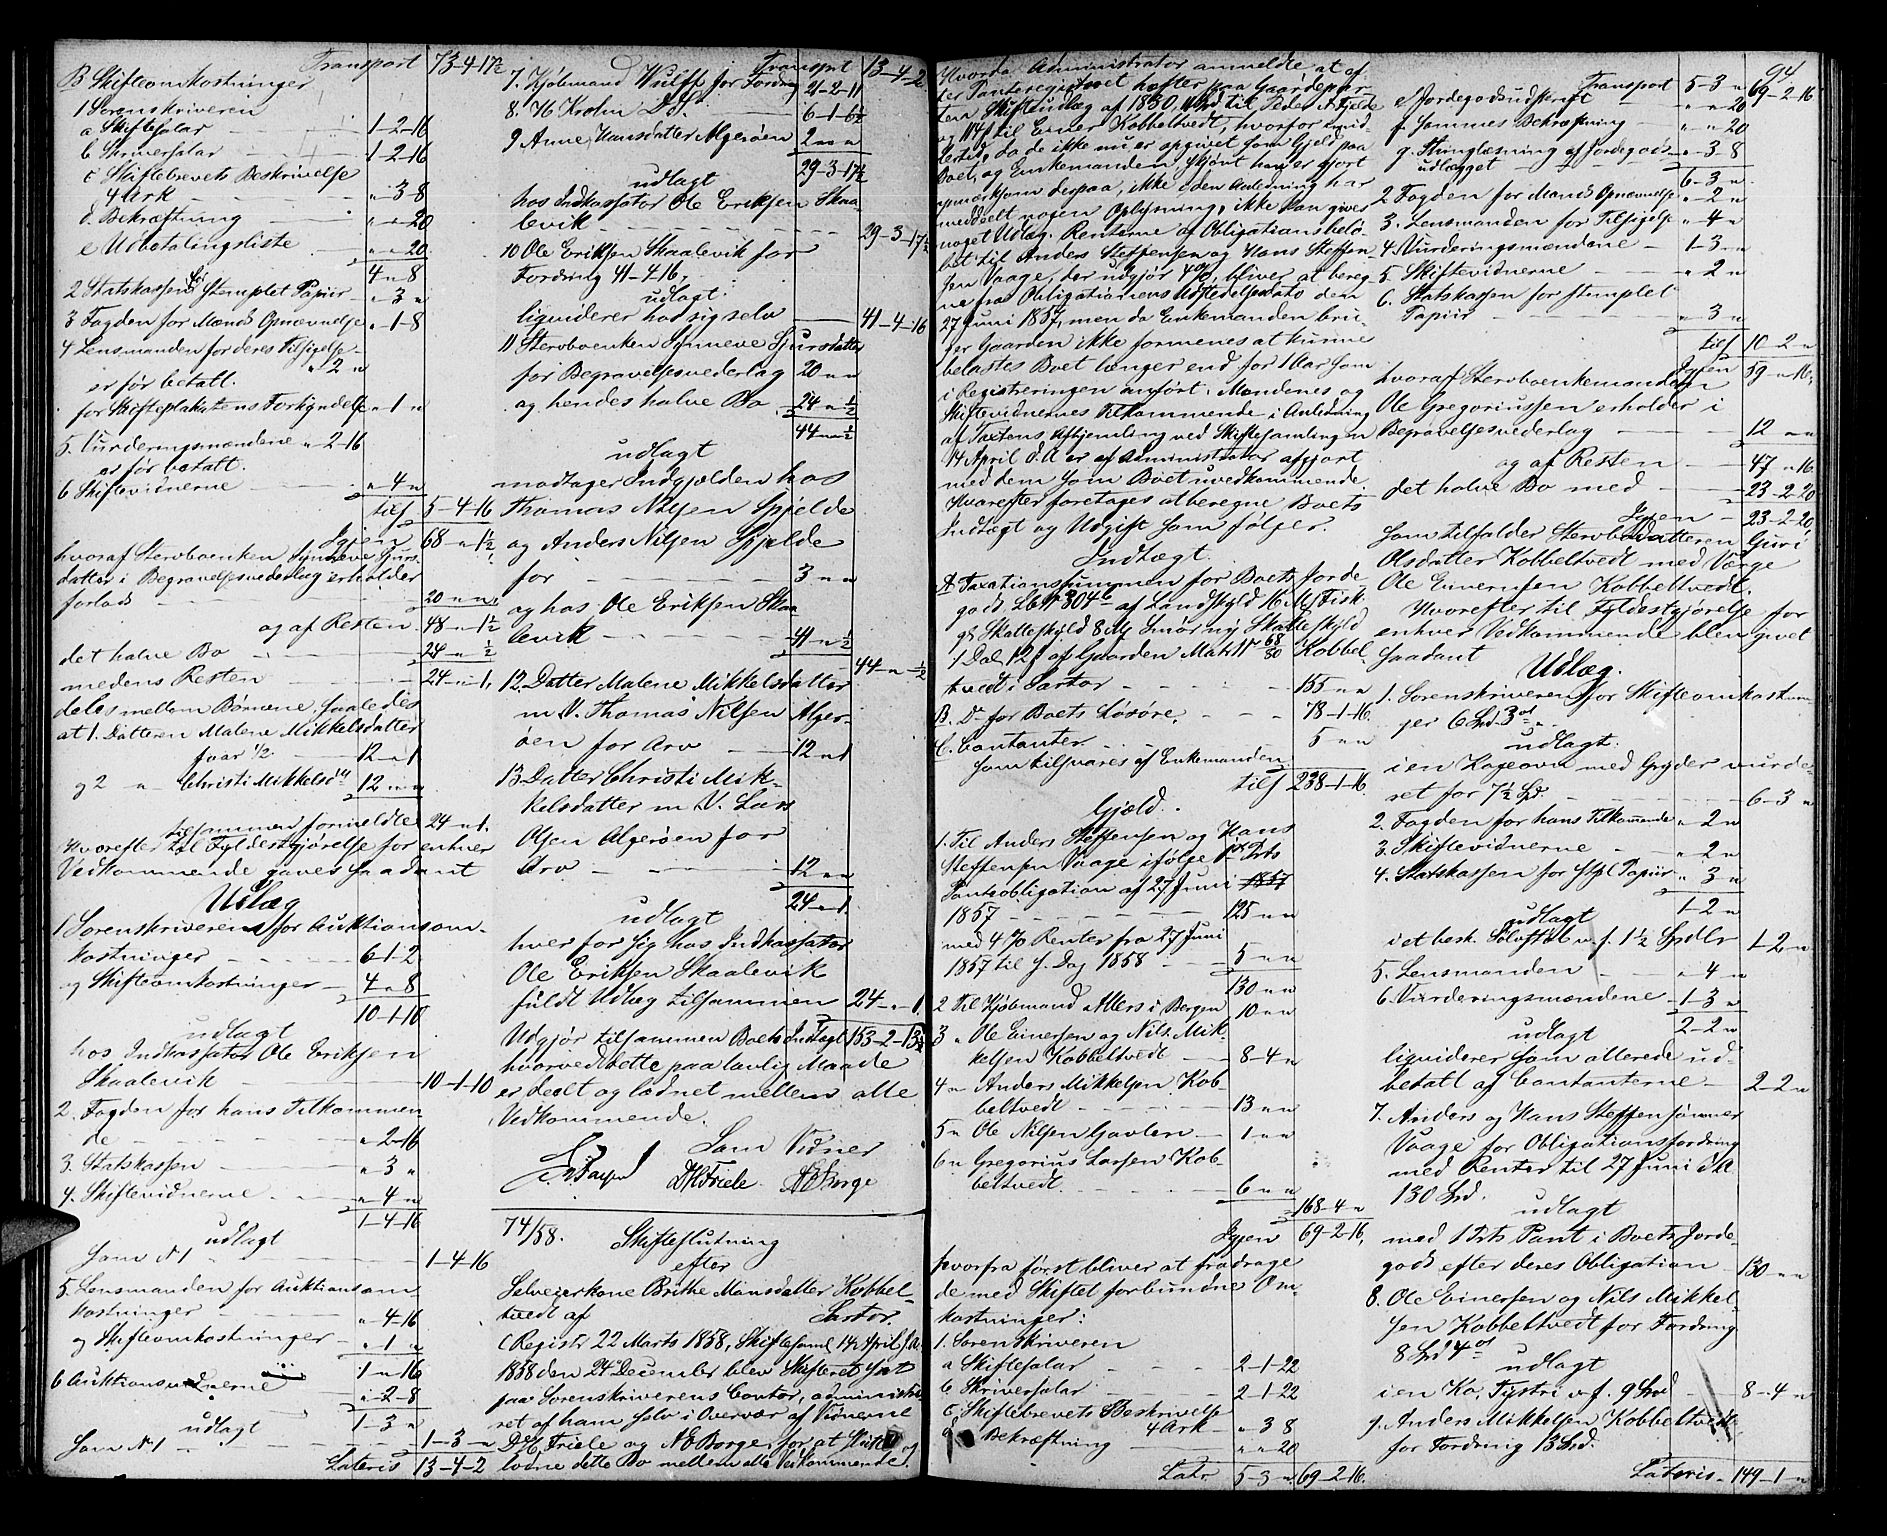 Transport 73-4-17½
B Skifteomkostninger
1 Sorenskriveren
a Skiftesalar 1-2-16
b Skriversalar 1-2-16
c Skiftebrevets Beskrivelse
4 Ark " 3-8
d. Bekræftning " " 20
e Udbetalingsliste " " 20
4 " 8
2 Statskassen for Stemplet Papiir " 3 "
3 Fogden for Mænds Opnævnelse " 1-8
4 Lensmanden for deres Tilsigelse
" 2 "
er før betalt.
for Skifteplakatens Forkyndelse " 1 "
5. Vurderingsmændene " 2-16
er før betalt.
6 Skiftevidnerne " 4 "
tils 5-4-16
Igjen 68 " 1½
hvoraf Stervboenken Synneve Sjurs
datter i Begravelsesvederlag erholder
forlods 20 " "
og af Resten 48 " 1½
det halve Bo 24 " ½
medens Resten 24 " 1.
deles mellem Børnene, saaledes
at 1. Datteren Malene Mikkelsdatter
faar ½ 12 " 1
og 2 " Christi Mikkelsdtr 12 " "
tilsammen formeldte 24 " 1.
Hvorefter til Fyldestgjørelse for enhver
Vedkommende gaves saadant
Udlæg
1 Sorenskriveren for Auktionsom-
kostninger 6-1-2
og Skifteomkostninger 4 " 8
10-1-10
udlagt
hos Indkassator Ole Eriksen
Skaalevik 10-1-10
2. Fogden for hans Tilkommen
de " 2-16
3. Statskassen " 3 "
4. Skiftevidnerne " 4 "
1-4-16
udlagt
som N 1 1-4-16
5. Lensmanden for Auktionsom
kostninger " 4-16
og Skifteomkostninger " 1 "
1 " 16
6 Auktionsvidnerne " 2-8
1-3 "
udlagt
som N 1 1-3 "
Lateris 13-4-2
Transport 13-4-2
7. Kjøbmand Wulff for Fordring 21-2-11
8. H Krohn Do So 6-1-6½
9 Anne Hansdatter Algerøen 2 " "
29-3-17½
udlagt
hos Indkassator Ole Eriksen Skaa
levik 29-3-17½
10 Ole Eriksen Skaalevik for
Fordring 41-4-16.
udlagt.
liquiderer hos sig selv 41-4-16
11 Stervboenken Synneve Sjursdatter
for Begravelsesvederlag 20 " "
og hendes halve Bo 24 " ½
44 " ½
udlagt
modtager Indgjælden hos
Thomas Nilsen Gjelde
og Anders Nilsen Gjelde
for 3 " "
og hos Ole Eriksen Skaa
levik 41 " ½
44 " ½
12. Datter Malene Mikkelsdatter
m V. Thomas Nilsen Alger-
øen for Arv 12 " 1
13. Datter Christi Mik-
kelsdatter m V. Lars
Olsen Algerøen for
Arv 12 " "
24 " 1.
udlagt
hver for sig hos Indkassator
Ole Eriksen Skaalevik
fuldt Udlæg tilsammen 24 " 1
Udgjør tilsammen Boets Indtægt 153-2-13½
hvorved dette paa lovlig Maade
er deelt og lodnet mellem alle
Vedkommende.
Som Vidner
DHFriele. NEBorge
74/58. Skifteslutning
efter
Selveierkone Brithe Monsdatter Kobbel-
tvedt af Sartor.
(Registr 22 Marts 1858, Skiftesaml 14 April s.A.)
1858 den 24 December blev Skifteret sat
paa Sorenskriverens Contor, administre
ret af ham selv i Overvær af Vidnerne
DH Friele og N E Borge, for at slutte og
lodne dette Bo mellem alle Vedkommende.
94
Hvorda Administrator anmeldte at ef
ter Panteregistret hefter paa Gaardepar-
ten Skifteudlæg af 1830
til Einer Kobbeltvedt, hvorfor imid-
lertid, da de ikke nu er opgivet som Gjeld paa
Boet, og Enkemanden skjønt han er gjort
opmærksom derpaa, ikke i den Anledning har
meddeelt nogen Oplysning, ikke kan gives
noget Udlæg. Renterne af Obligationsbelø-
bet til Anders Steffensen og Hans Steffen
sen Vaage, der udgjør 4%, bliver at bereg
ne fra Obligationens Udstedelsesdato den
27 Juni 1857, men da Enkemanden bru-
ger Gaarden ikke formenes at kunne
belastes Boet længer end for 1 Aar som
i Registreringen anført. Mændenes og
Skiftevidnernes Tilkommende i Anledning
af Taxtens Afhjemling ved Skiftesamlingen
14 April d.A er af Administrator afgjort
med dem som Boet uvedkommende.
Hvorefter foretages at beregne Boets
Indtægt og Udgift som følger.
Indtægt.
A Taxationssummen for Boets Jorde
gods LbN 304b af Landskyld 16 Mk Fisk
gl Skatteskyld 8 Mk Smør ny Skatteskyld
1 Dal. 12 s af Gaarden Mat N 68/80 Kobbel
tvedt i Sartor 155 " "
B. Do for Boets Løsøre. 78-1-16
C. Contanter 5 " "
som tilsvares af Enkemanden
tils 238-1-16
Gjæld.
1. Til Anders Steffensen og Hans
Steffensen Vaage ifølge 1ste Prts
Pantobligation af 27 Juni
1857 125 " "
med 4% Renter fra 27 Juni
1857 til s. Dag 1858 5 " "
130 " "
2 Til Kjøbmand Allers i Bergen 10 " "
3 " Ole Einersen og Nils Mik-
kelsen Kobbeltvedt 8-4 "
4 " Anders Mikkelsen Kob-
beltvedt 13 " "
5 " Ole Nilsen Gavlen 1 " "
6 " Gregorius Larsen Kob-
beltvedt. 6 " "
168-4 "
Igjen 69-2-16.
hvorfra først bliver at fradrage
de med Skiftet forbundne Om-
kostninger:
1. Sorenskriveren
a Skiftesalar 2-1-22
b Skriversalar 2-1-22
c. Skiftebrevets Beskrivelse
4 Ark " 3 8
d Bekræftning " " 20
Latr 5-3 " 69-2-16.
Transport 5-3 " 69-2-16
e Jordegodsudskrift " " 20
f. Sammes Bekræftning " " 20
g. Thinglæsning af Jordegods-
udlægget " 3 8
6-3 "
2 Fogden for Mænds Opnævnelse " 2 "
3. Lensmanden for Tilsigelse " 4 "
4 Vurderingsmændene 1-3 "
5 Skiftevidnerne " 2 "
6. Statskassen for stemplet
Papiir " 3 "
tils 10-2 "
Igjen 59 " 16,
hvoraf Stervboenkemanden
Ole Gregoriussen erholder i
Begravelsesvederlag 12 " "
og af Resten 47 " 16
det halve Bo med 23-2-20
Igjen 23-2-20,
som tilfalder Stervbodatteren Guri
Olsdatter Kobbeltvedt med Værge
Ole Einersen Kobbeltvedt.
Hvorefter til Fyldestgjørelse for
enhver Vedkommende blev givet
saadant
Udlæg.
1. Sorenskriveren for Skifteomkostnin
ger 6 Spd 3 ort
udlagt.
i en Kageovn med Gryder vurde-
ret for 7½ Spd. 6-3 "
2. Fogden for hans Tilkommende " 2 "
3. Skiftevidnerne " 2 "
4. Statskassen for Stpl Papiir " 3 "
1-2 "
udlagt
i et besk. Sølvstøb v. f. 1½ Spdlr 1-2 "
5. Lensmanden " 4 "
6. Vurderingsmændene 1-3 "
2-2 "
udlagt
liquiderer som allerede ud-
betalt af Contanterne 2-2 "
7. Anders og Hans Steffensønner
Vaage for Obligationsfordring
med Renter til 27 Juni d.A.
130 Spd.
udlagt
med 1 Prts Pant i Boets Jorde-
gods efter deres Obligation 130 " "
8. Ole Einersen og Nils Mikkel-
sen Kobbeltvedt for Fordring
8 Spd 4 ort
udlagt
i en Ko, Fystri v f. 9 Spd 8-4 "
9. Anders Mikkelsen Kobbeltvedt
for Fordring 13 Spd.
Lateris 149-1 "